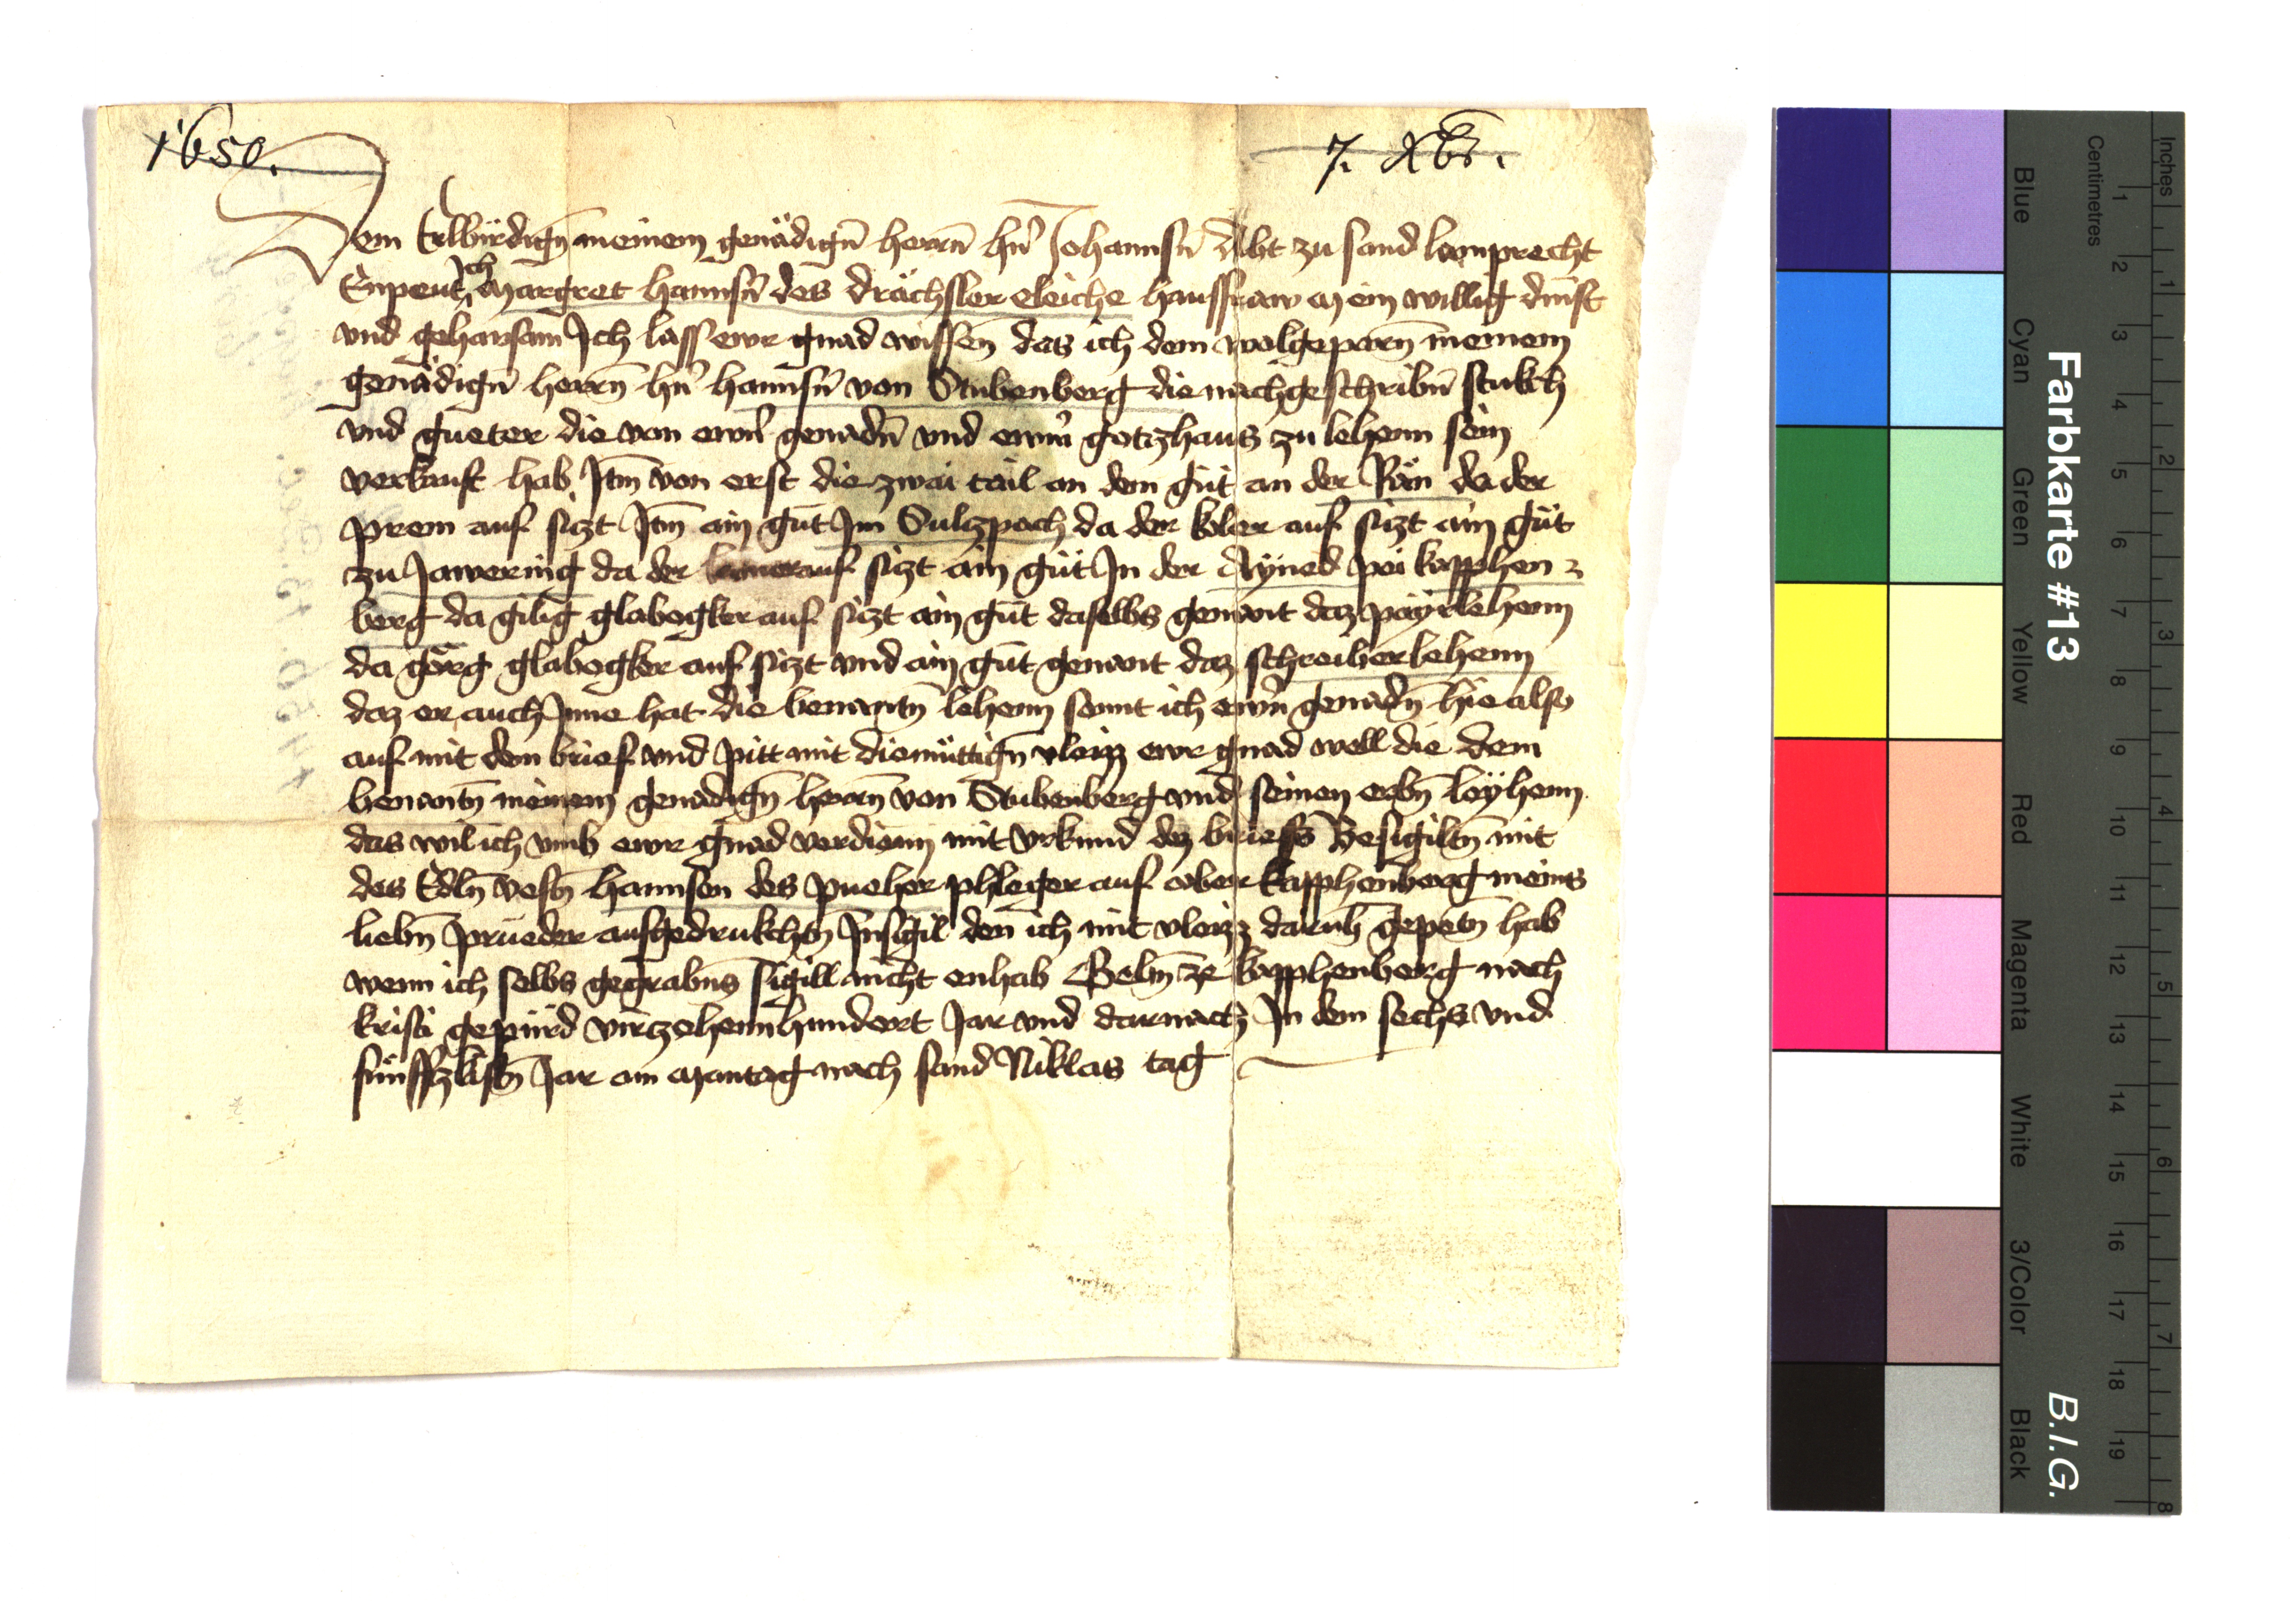 1650.
7. Xbr.
Dem Erbirdign meinem genädign herrn hn Johannsn Abt zu sand lamprecht
Enpeut Ich Margret hannsn des drächsler eleiche haussfraw mein willig dinst
vnd gehorsam Ich lass ewr gnad wissen das ich dem wolgeporn meinem
genädign herrn hn hannsn von Stubenberg die nachgeschribn stukch
vnd gueter die von ewrn genadn vnd ewrm gotzhaus zu lehenn sein
verkauft hab Itm von erst die zwai tail an dem gut an der Rän da der
prem auf sizt Itm ain gut Im Sulzpach da der koler auf sizt ain gut
zu Jawering da der auf sizt ain gut In der Aÿned pei kapphen
berg da gilig glabogker auf sizt ain gut daselbs genant daz payrlehenn
da görg glabogker auf sizt vnd ain gut genant daz schreiberlehenn
daz er auch Inne hat die benantn lehenn sennt ich ewrn genadn hie also
auf mit dem brief vnd pitt mit diemüttign vleizz ewr gnad well die dem
benantn meinem genadign herrn von Stubenberg vnd seinen erbn leÿhenn
das wil ich vmb ewr gnad verdienn mit vrkund dez brieffs Besigiltn mit
des Edln vestn hannsen des pueher phleger auf ober kapphenberg meins
liebn prueder aufgedrukchtn Insigil den ich mit vleizz darub gepetn hab
wenn ich selbs gegrabns sigill nicht enhab Gebm ze kapphenberg nach
kristi gepurd virzehenn hundert Jar vnd darnach In dem sechs vnd
fünffzkistn Jar am Mantag nach sand Niklas tag
Farbkarte #13
B.I.G.
Blue
Cyan
Green
Yellow
Red
Magenta
White
3/Color
Black
Centimetres
1
2
3
4
5
6
7
8
9
10
11
12
13
14
15
16
17
18
19
Inches
1
2
3
4
5
6
7
8